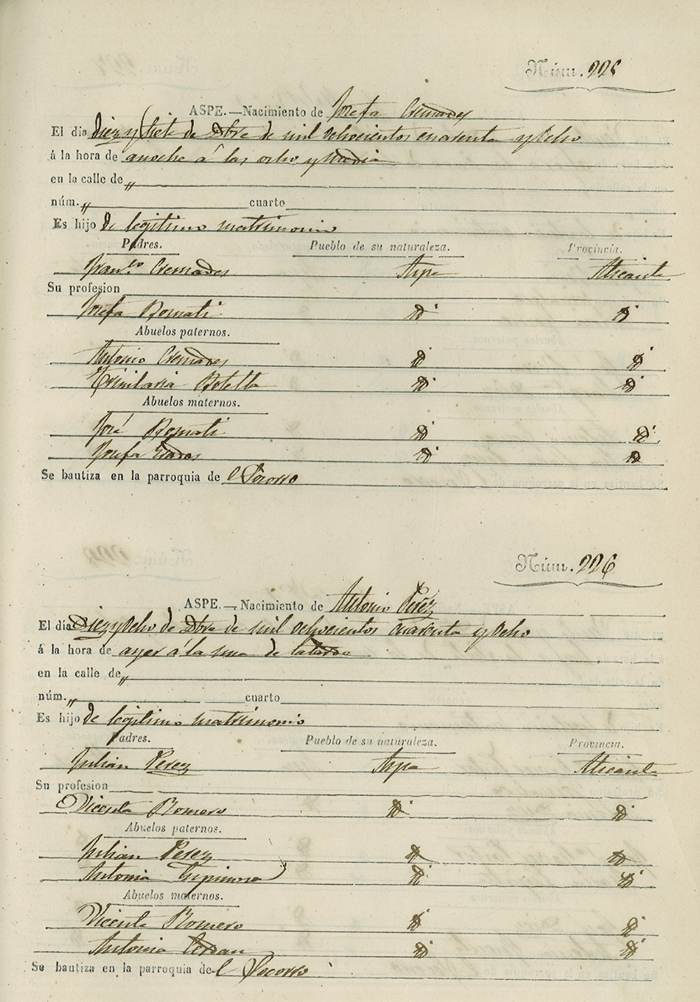 Núm. 225
ASPE.—Nacimiento de Josefa Cremades
El dia Diez y siete de Dbre de mil ochocientos cuarenta y Ocho
á la hora de anoche á las ocho y media
en la calle de „
núm. „ cuarto
Es hijo de legitimo matrimonio
Padres. Pueblo de su naturaleza. Provincia.
Franco Cremades Aspe Alicante
Su profesion
Josefa Bomati id id
Abuelos paternos.
Antonio Cremades id id
Trinitaria Botella id id
Abuelos maternos.
José Bomati id id
Josefa id id
Se bautiza en la parroquia de l Socorro
Núm. 226
ASPE.—Nacimiento de Antonio Perez
El dia Diez y Ocho de Dbre de mil ochocientos cuarenta y Ocho
á la hora de ayer á la una de la tarde
en la calle de „
núm. „ cuarto
Es hijo de legitimo matrimonio
Padres. Pueblo de su naturaleza. Provincia.
Julian Perez Aspe Alicante
Su profesion
Vicenta Romero id id
Abuelos paternos.
Julian Perez id id
Antonia id id
Abuelos maternos.
Vicente Romero id id
Antonia id id
Se bautiza en la parroquia de l Socorro